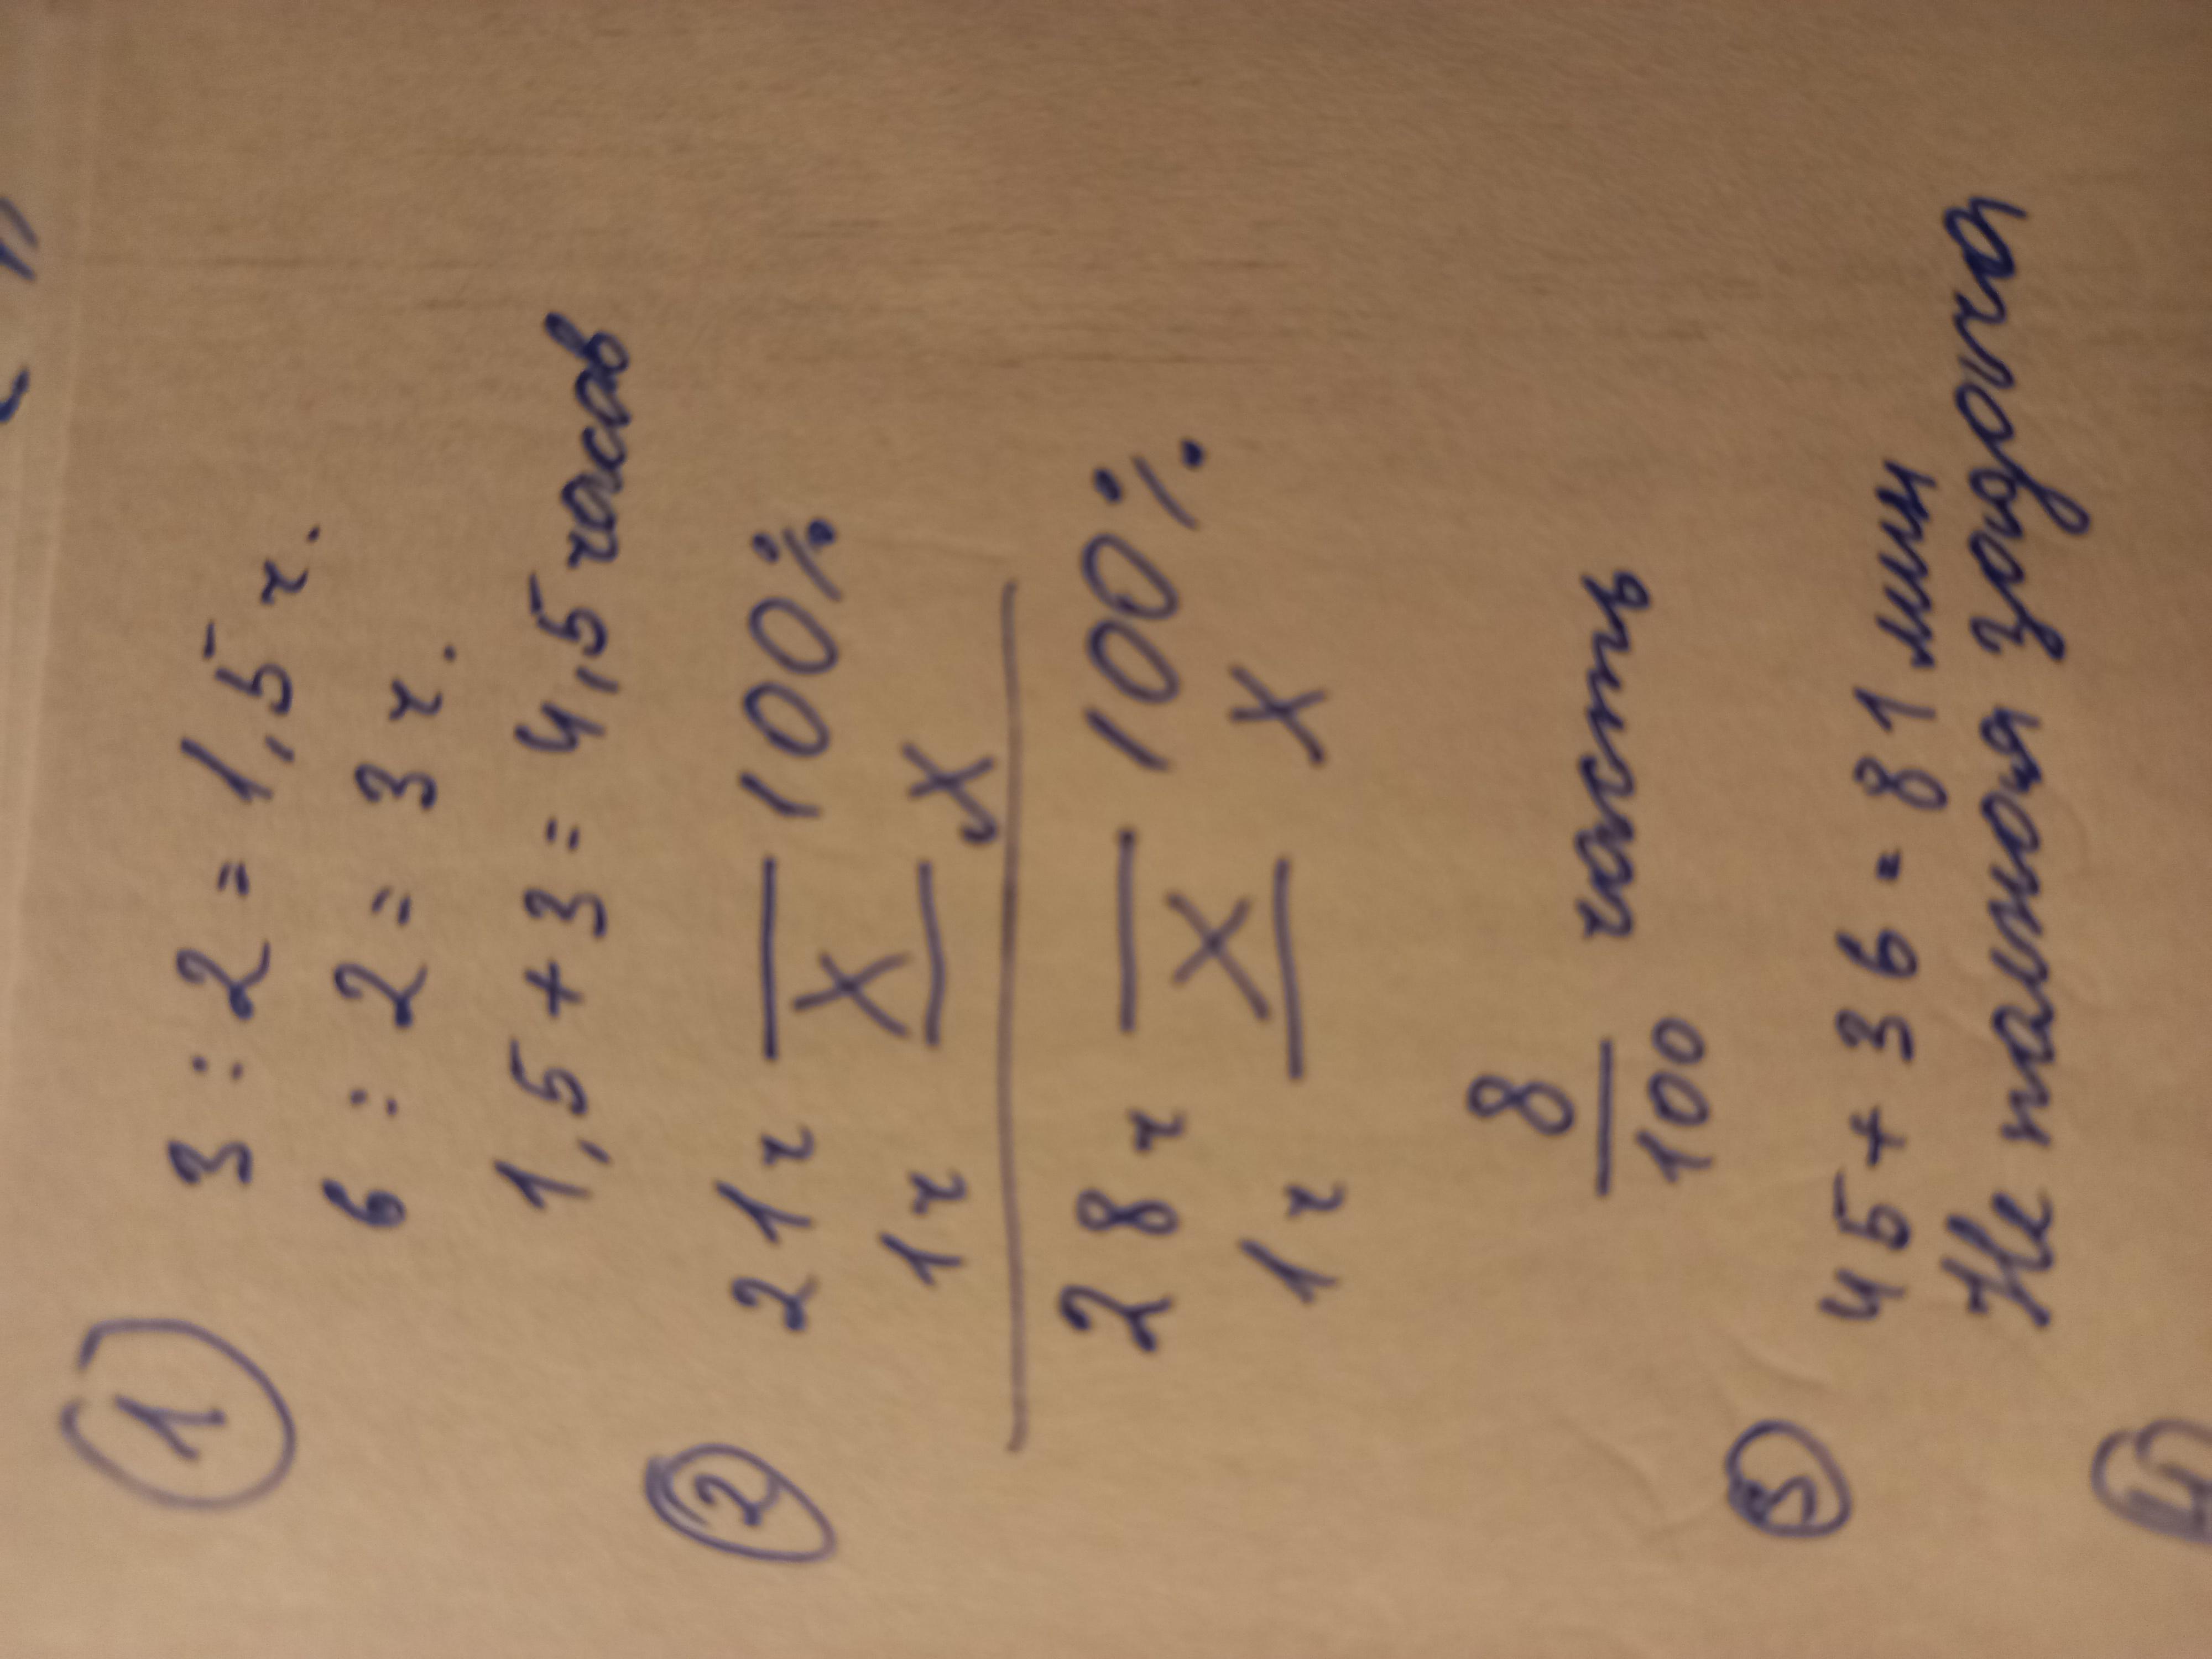 1
3 : 2 = 1,5 ч.
6 : 2 = 3 ч.
1,5 + 3 = 4,5 часов
2
21 ч — 100%
X
1 ч — x
28 ч — 100%
X
1 ч — x
8
100
часть
3
45 + 36 = 81 мин
Не полная задача
4